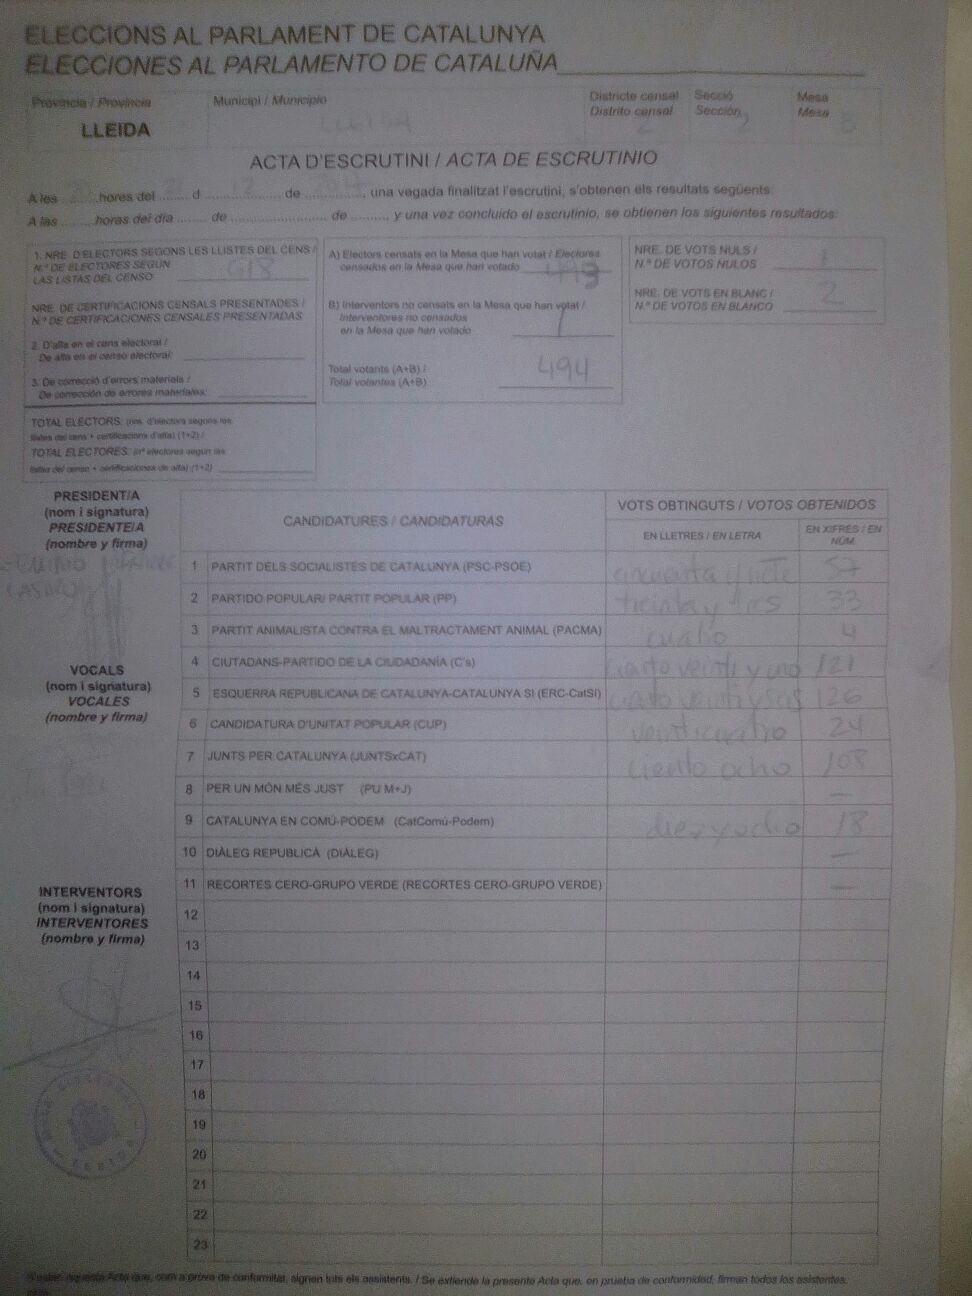 ELECCIONS AL PARLAMENT DE CATALUNYA
ELECCIONES AL PARLAMENTO DE CATALUÑA
Província / Provincia
LLEIDA
Municipi / Municipio
Lleida
Districte censal
Distrito censal
2
Secció
Sección
2
Mesa
Mesa
B
ACTA D'ESCRUTINI / ACTA DE ESCRUTINIO
A les 20 hores del 21 d 12 de 2017, una vegada finalitzat l'escrutini, s'obtenen els resultats següents:
A las ........ horas del día ........ de ........ de ........ y una vez concluido el escrutinio, se obtienen los siguientes resultados:
1. NRE. D'ELECTORS SEGONS LES LLISTES DEL CENS /
N.º DE ELECTORES SEGÚN
LAS LISTAS DEL CENSO 618
NRE. DE CERTIFICACIONS CENSALS PRESENTADES /
N.º DE CERTIFICACIONES CENSALES PRESENTADAS
2. D'alta en el cens electoral /
De alta en el censo electoral:
3. De correcció d'errors materials /
De corrección de errores materiales:
TOTAL ELECTORS: (nre. d'electors segons les
llistes del cens + certificacions d'alta) (1+2) /
TOTAL ELECTORES: (nº electores según las
listas del censo + certificaciones de alta) (1+2)
A) Electors censats en la Mesa que han votat / Electores
censados en la Mesa que han votado 493
B) Interventors no censats en la Mesa que han votat /
Interventores no censados
en la Mesa que han votado 1
Total votants (A+B) /
Total votantes (A+B) 494
NRE. DE VOTS NULS /
N.º DE VOTOS NULOS 1
NRE. DE VOTS EN BLANC /
N.º DE VOTOS EN BLANCO 2
PRESIDENT/A
(nom i signatura)
PRESIDENTE/A
(nombre y firma)
VOCALS
(nom i signatura)
VOCALES
(nombre y firma)
INTERVENTORS
(nom i signatura)
INTERVENTORES
(nombre y firma)
CANDIDATURES / CANDIDATURAS
VOTS OBTINGUTS / VOTOS OBTENIDOS
EN LLETRES / EN LETRA
EN XIFRES / EN
NÚM.
1 PARTIT DELS SOCIALISTES DE CATALUNYA (PSC-PSOE) cincuenta y siete 57
2 PARTIDO POPULAR/ PARTIT POPULAR (PP) treinta y tres 33
3 PARTIT ANIMALISTA CONTRA EL MALTRACTAMENT ANIMAL (PACMA) cuatro 4
4 CIUTADANS-PARTIDO DE LA CIUDADANÍA (C's) ciento veinti y uno 121
5 ESQUERRA REPUBLICANA DE CATALUNYA-CATALUNYA SÍ (ERC-CatSí) ciento veinti y seis 126
6 CANDIDATURA D'UNITAT POPULAR (CUP) veinticuatro 24
7 JUNTS PER CATALUNYA (JUNTSxCAT) ciento ocho 108
8 PER UN MÓN MÉS JUST (PU M+J) —
9 CATALUNYA EN COMÚ-PODEM (CatComú-Podem) diez y ocho 18
10 DIÀLEG REPUBLICÀ (DIÀLEG) —
11 RECORTES CERO-GRUPO VERDE (RECORTES CERO-GRUPO VERDE) —
12
13
14
15
16
17
18
19
20
21
22
23
aquesta Acta que, com a prova de conformitat, signen tots els assistents. / Se extiende la presente Acta que, en prueba de conformidad, firman todos los asistentes.